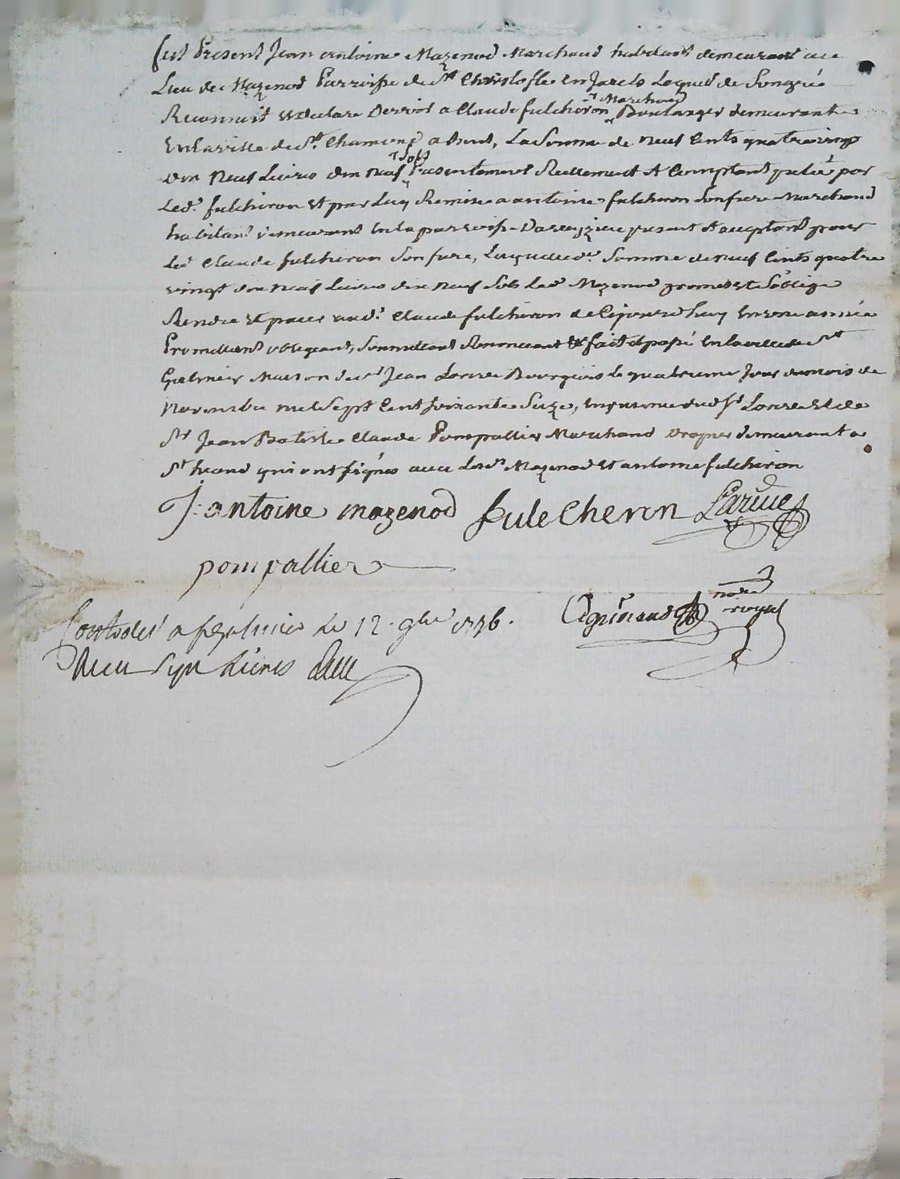 fut Present Jean Antoine Mazenod Marchand habitant demeurant au
Lieu de Mazenod Parroisse de St. Christofle en Jarets Lequel de Son gré
Reconnoit et declare Devoir a Claude fulchiron Marchand Boulanger demeurant
En la ville de St. Chamond absent, La Somme de neuf Cents quatre vingt
dix Neuf Livres dix neuf Sols presentement Reellement et Comptant par
Led. fulchiron et par Luy Remise a antoine fulchiron Son frere Marchand
habitant demeurant En la parroisse present et acceptant pour
Led. Claude fulchiron Son frere, Laquelle Somme de neuf Cents quatre
vingt dix neuf Livres dix neuf Sols Led. Mazenod promet et S'oblige
Rendre et payer aud. Claude fulchiron de Cejourd'huy En une année
Promettant obligeant, Soumettant Renonceant &c fait et passé En la ville de St
Galmier Maison de Sr. Jean Larive Bourgeois le quatrieme Jour du mois de
Novembre mil Sept Cent Soixante Seize, En presence dud. Sr. Larive et de
Sr Jean Batiste Claude Pompallier Marchand demeurant a
St heand qui ont signés avec Led. Mazenod et antoine fulchiron
J: antoine mazenod fulcheron Larive
pompallier
nore
royal
Controllé a St galmier Le 12 9bre 1776.
Reçu livres